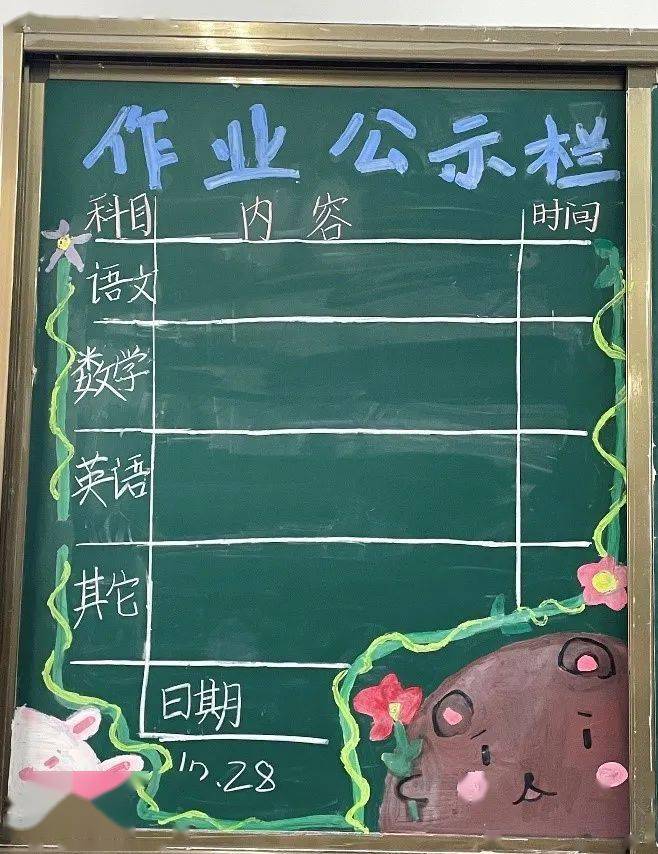 作业公示栏
科目 内容 时间
语文
数学
英语
其它
日期
10.28